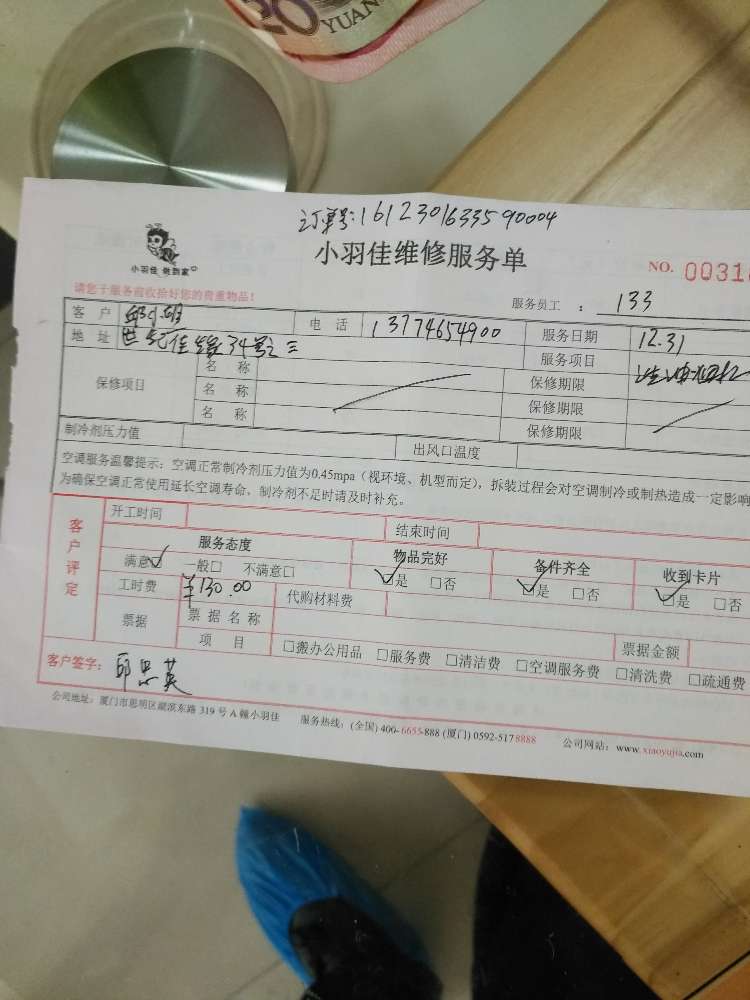 20
YUAN
订单号:161230163359 0004
小羽佳 做到家
小羽佳维修服务单
NO. 0031
请您于服务前收拾好您的贵重物品!
服务员工 : 133
客 户 电 话 13774654900 服务日期 12.31
地 址 世纪佳缘34号之三 服务项目 清洗油烟机
保修项目 名 称 保修期限
名 称 保修期限
名 称 保修期限
制冷剂压力值 出风口温度
空调服务温馨提示:空调正常制冷剂压力值为0.45mpa(视环境、机型而定),拆装过程会对空调制冷或制热造成一定影响
为确保空调正常使用延长空调寿命,制冷剂不足时请及时补充。
客户评定
开工时间 结束时间
服务态度 物品完好 备件齐全 收到卡片
满意☑ 一般□ 不满意□ ☑是 □否 ☑是 □否 ☑是 □否
工时费 ¥130.00 代购材料费
票据 票 据 名 称 票据金额
项 目 □搬办公用品 □服务费 □清洁费 □空调服务费 □清洗费 □疏通费
客户签字: 邱思英
公司地址:厦门市思明区湖滨东路 319 号 A 幢小羽佳 服务热线:(全国) 400-6655-888 (厦门) 0592-5178888 公司网站:www.xiaoyujia.com